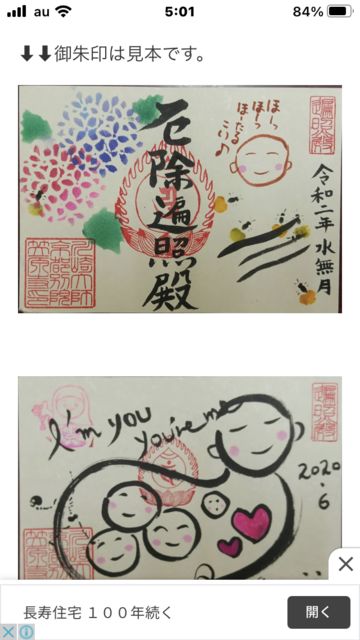 au
5:01
84%
⬇⬇御朱印は見本です。
厄除遍照殿
ほーっ
ほーっ
ほーたる
こい♪
令和二年 水無月
I'm you
you're me
2020
.6
長寿住宅 １００年続く
開く